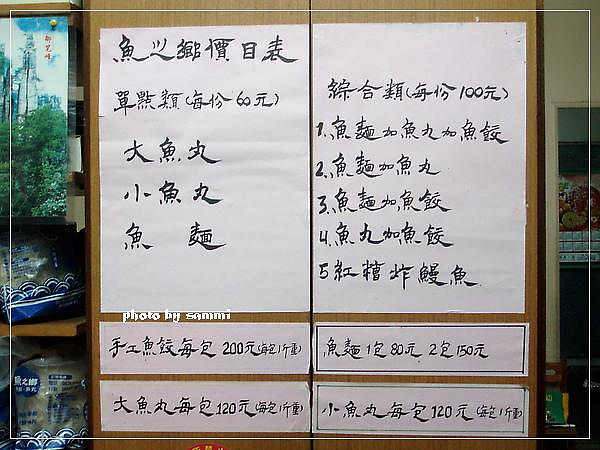 魚之鄉價目表
單點類(每份60元)
大魚丸
小魚丸
魚麵
綜合類(每份100元)
1.魚麵加魚丸加魚餃
2.魚麵加魚丸
3.魚麵加魚餃
4.魚丸加魚餃
5紅糟炸鰻魚
photo by sammi
手工魚餃每包200元(每包1斤重)
魚麵1包80元 2包150元
大魚丸每包120元(每包1斤重)
小魚丸每包120元(每包1斤重)
魚之鄉